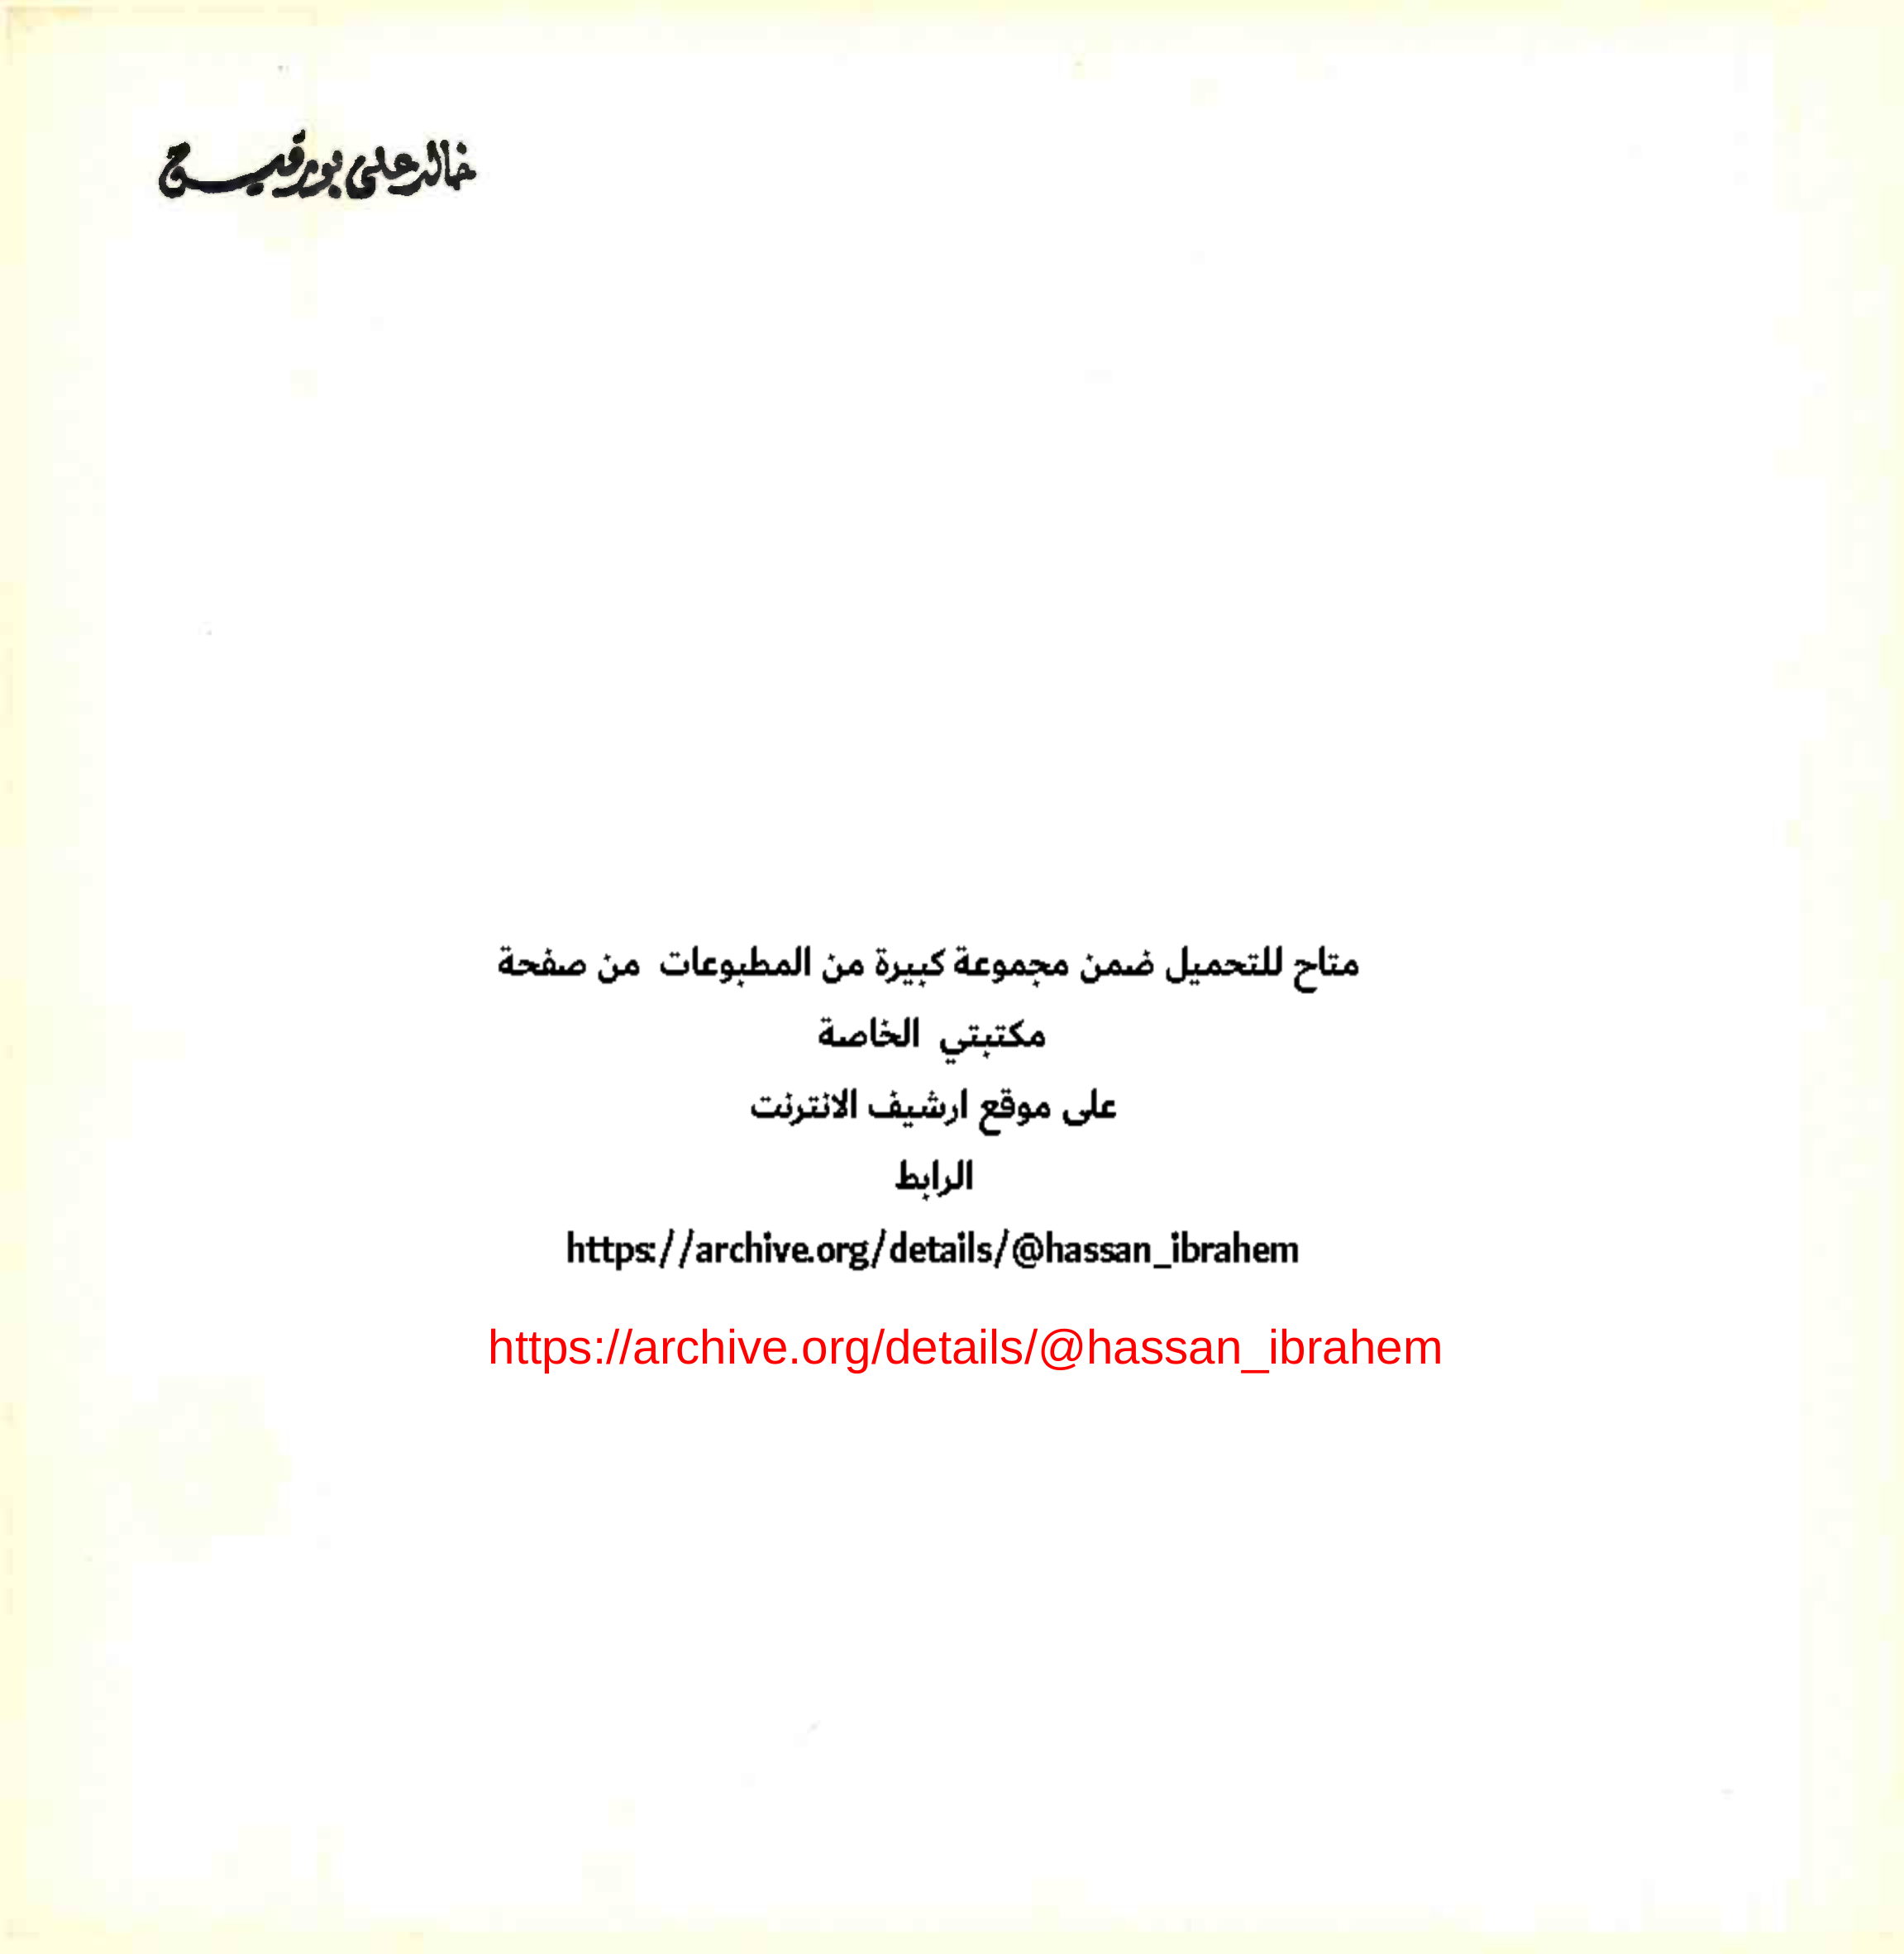 خالد علي بورقيبة
متاح للتحميل ضمن مجموعة كبيرة من المطبوعات من صفحة
مكتبتي الخاصة
على موقع ارشيف الانترنت
الرابط
https://archive.org/details/@hassan_ibrahem
https://archive.org/details/@hassan_ibrahem